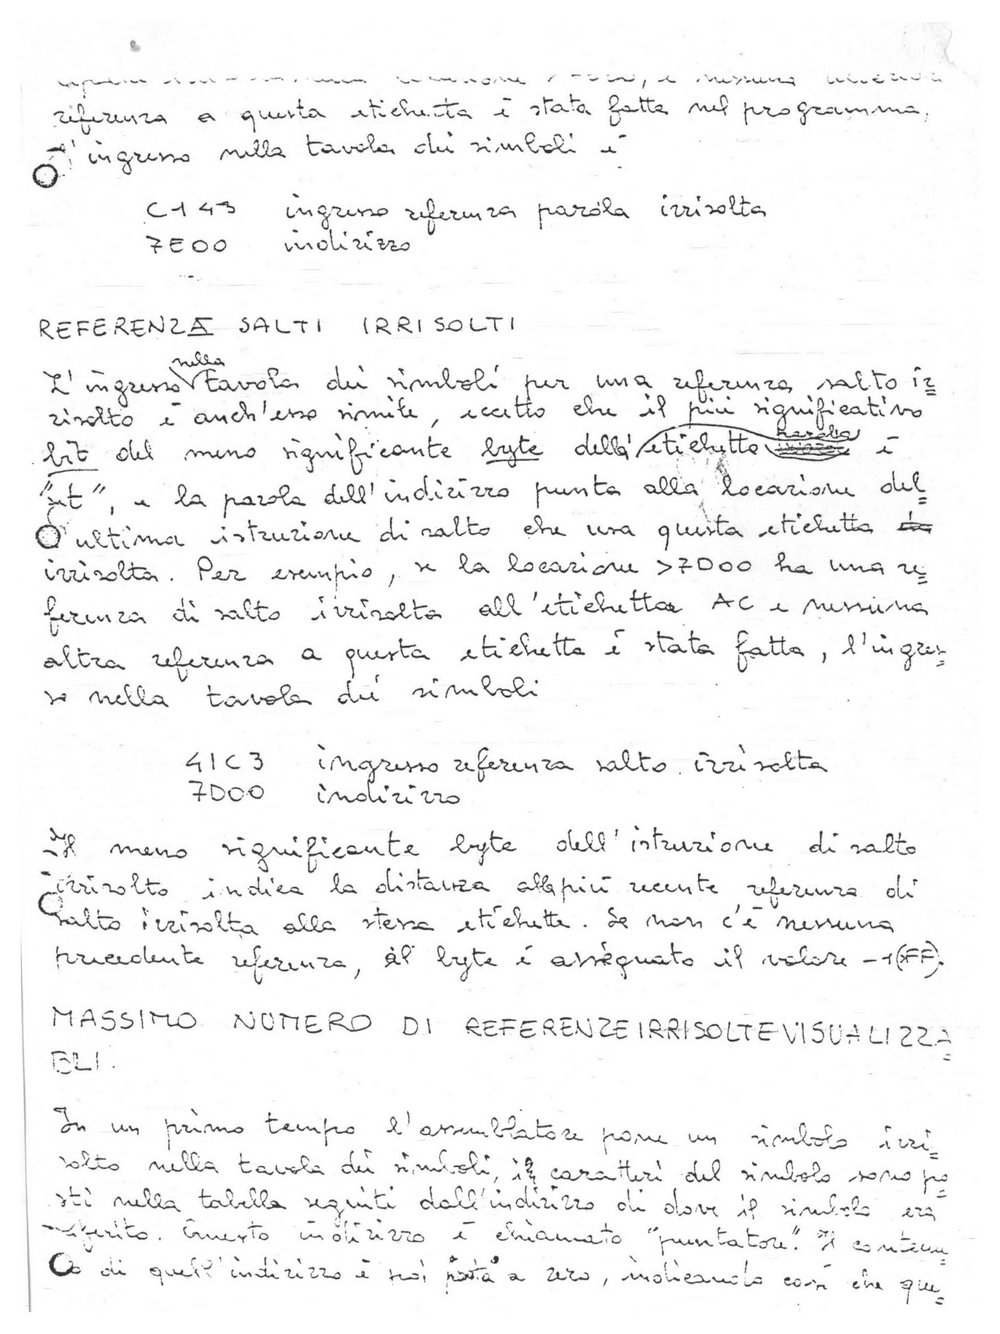 referenza a questa etichetta è stata fatta nel programma,
l'ingresso nella tavola dei simboli è
C143 ingresso referenza parola irrisolta
7E00 indirizzo
REFERENZA SALTI IRRISOLTI
nella
L'ingresso tavola dei simboli per una referenza salto ir=
risolto è anch'esso simile, eccetto che il più significativo
bit del meno significante byte della etichetta parola è
"set", e la parola dell'indirizzo punta alla locazione del=
l'ultima istruzione di salto che usa questa etichetta
irrisolta. Per esempio, se la locazione >7D00 ha una re=
ferenza di salto irrisolta all'etichetta AC e nessuna
altra referenza a questa etichetta è stata fatta, l'ingres=
so nella tavola dei simboli
41C3 ingresso referenza salto irrisolta
7D00 indirizzo
Il meno significante byte dell'istruzione di salto
irrisolto indica la distanza alla più recente referenza di
salto irrisolta alla stessa etichetta. Se non c'è nessuna
precedente referenza, al byte è assegnato il valore -1(>FF).
MASSIMO NUMERO DI REFERENZE IRRISOLTE VISUALIZZA=
BLI.
In un primo tempo l'assemblatore pone un simbolo irri=
solto nella tavola dei simboli, i 2 caratteri del simbolo sono po=
sti nella tabella seguiti dall'indirizzo di dove il simbolo era
riferito. Questo indirizzo è chiamato "puntatore". Il contenu=
to di quell'indirizzo è poi posto a zero, indicando così che que=